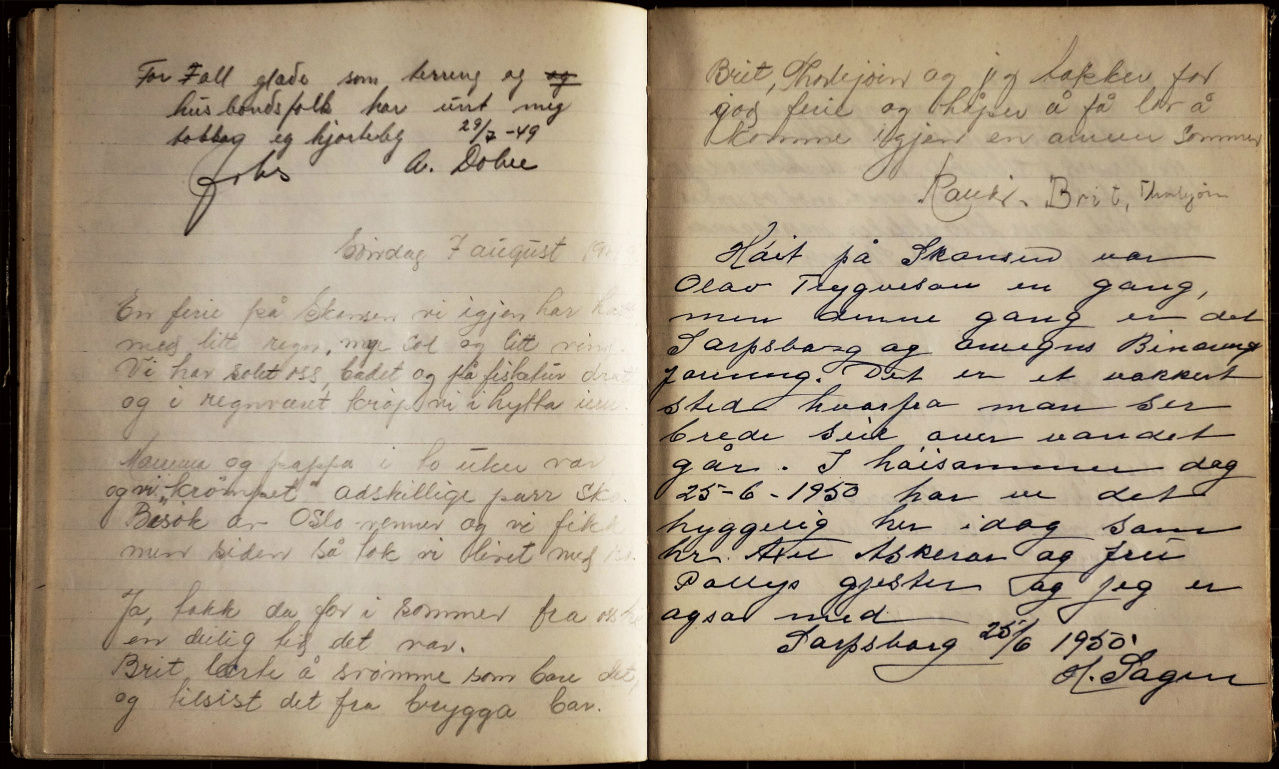 For Fall glade som terreng og og
husbondsfolk har unt meg
takkar eg hjorteleg 29/7 -49
A. Dolve
Søndag 7 august
En ferie på Skansen vi igjen har
med litt regn, mye sol og litt vind.
Vi har solet oss, badet og på fisketur dratt
og i regnværet krøp vi i hytta inn.
Mamma og pappa i to uker var
og vi "krømpet" adskillige parr sko.
Besøk av Oslo venner og vi fikk
men siden så tok vi livet med
Ja, takk da for i sommer fra oss
en deilig tid det var.
Brit lærte å svømme som bare det,
og tilsist det fra brygga bar.
Brit, Thorbjørn og jeg takker for
god ferie og håper å få lov å
komme igjen en annen sommer
Brit, Thorbjørn
Høit på Skansen var
Olav Trygveson en gang,
men denne gang er det
Sarpsborg og omegns
Det er et vakkert
sted hvorfra man ser
brede seil over vandet
går. I høisommer dag
25-6-1950 har vi det
hyggelig her idag som
hr. Askerøi og frue
gjester og jeg er
også med
Sarpsborg 25/6 1950.
H. Sagen